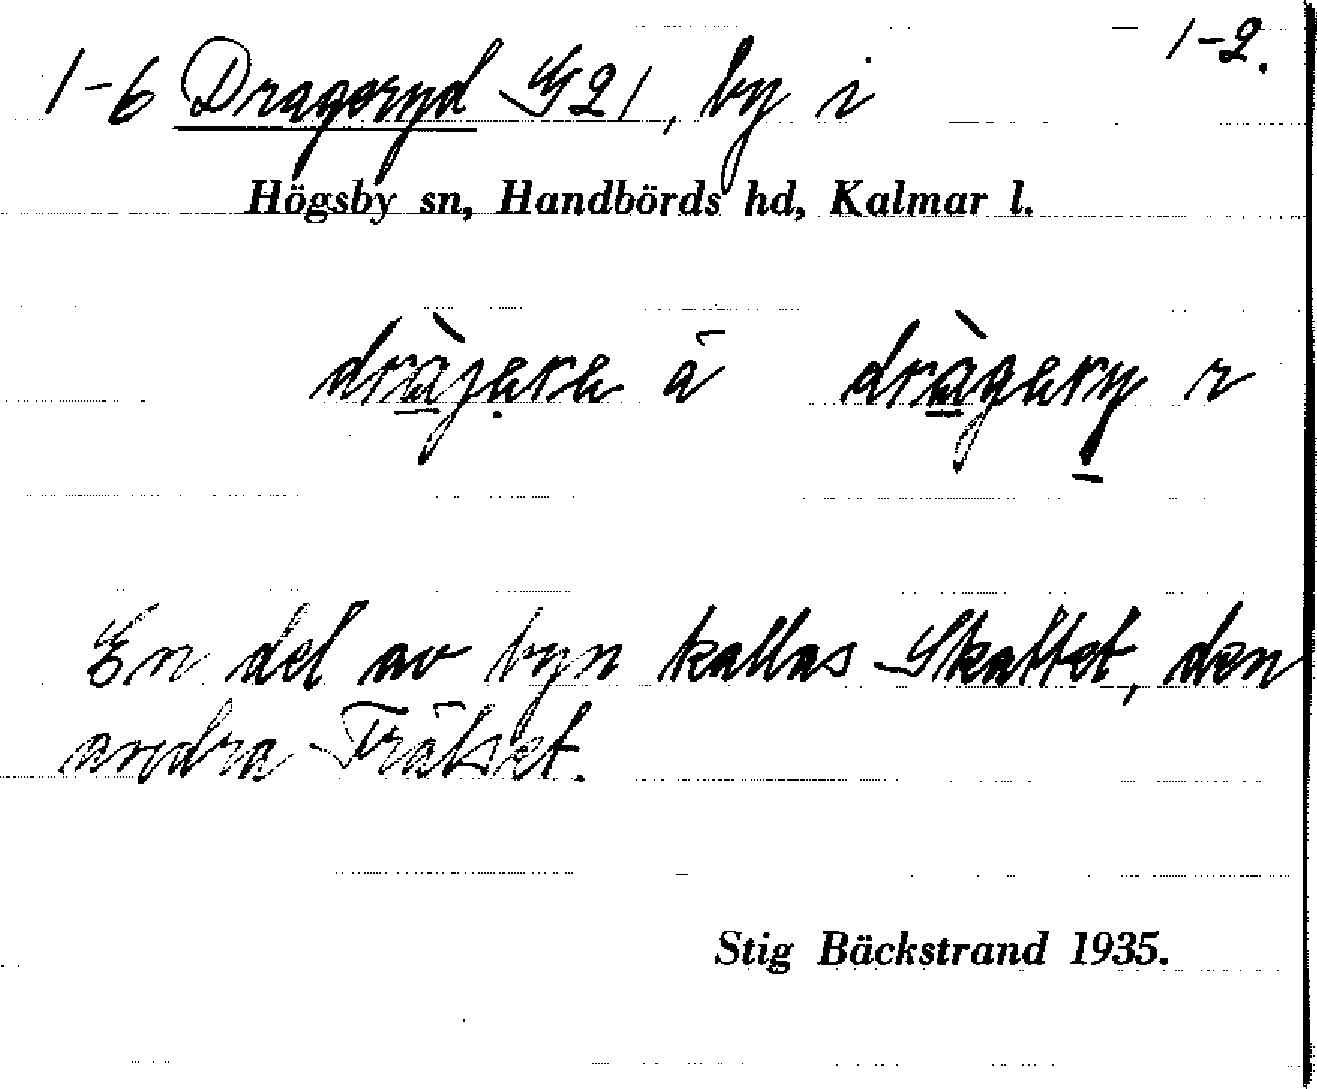 1-2.
1-6 Drageryd G21, by i
Högsby sn, Handbörds hd, Kalmar l.
dràjere ä dràgery r
En del av byn kallas Skattet, den
andra Frälset.
Stig Bäckstrand 1935.